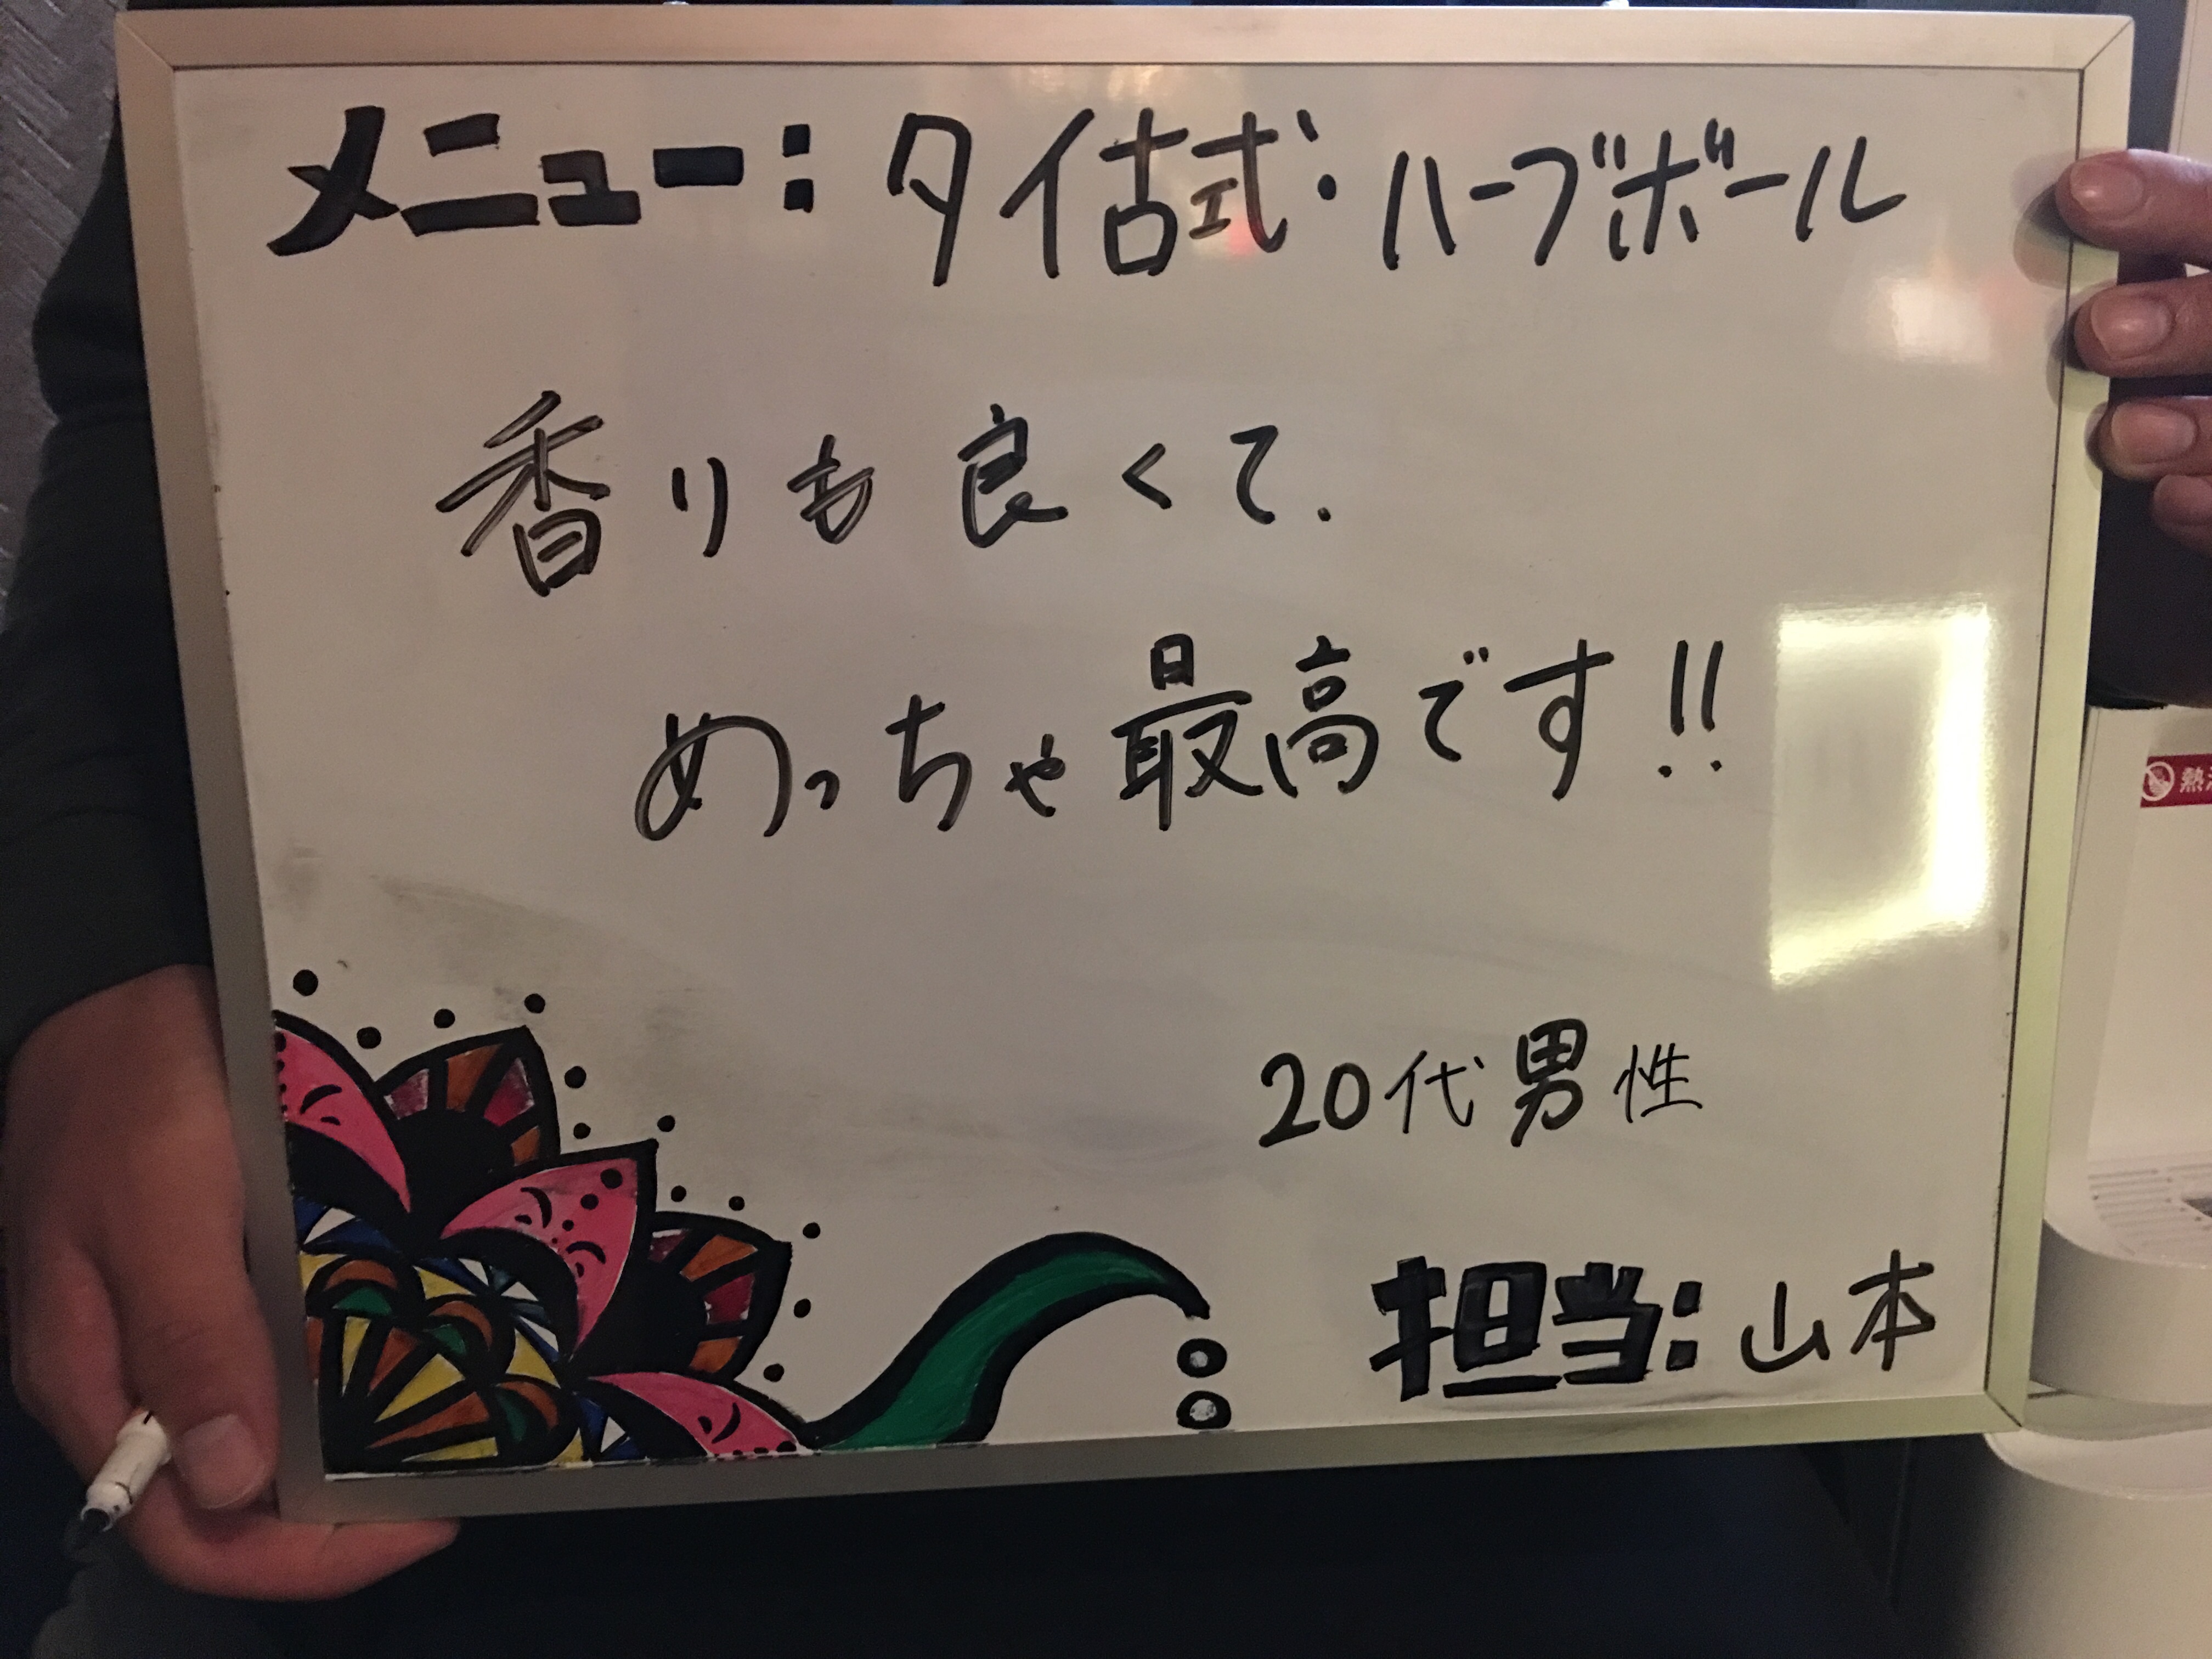 メニュー：タイ古式・ハーブボール
香りも良くて.
めっちゃ最高です!!
熱
20代男性
担当：山本